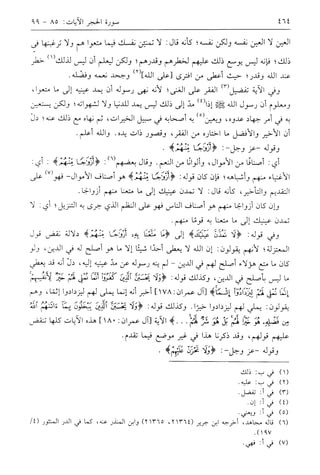 ٤٦٤ سورة الحجر الآيات: ٨٥ - ٩٩
العين لا العين نفسه ولكن نفسه؛ كأنه قال: لا تمنّين نفسك فيما متعوا هم ولا ترغبنها في
ذلك؛ فإنه ليس يوسع ذلك عليهم لخطرهم وقدرهم؛ ولكن ليعلم أن ليس لذلك(١) خطر
عند الله وقدر؛ حيث أعطى من افترى [على الله](٢) وجحد نعمه وفضله.
وفي الآية تفضيل(٣) الفقر على الغنى؛ لأنه نهى رسوله أن يمد عينيه إلى ما متعوا،
ومعلوم أن رسول الله ﷺ إذا(٤) مدّ إلى ذلك ليس يمد للدنيا ولا لشهواته؛ ولكن يستعين
به في أمر جهاد عدوه، ويعين(٥) به أصحابه في سبيل الخيرات، ثم نهاه مع ذلك عنه؛ دلّ
أن الأخير والأفضل ما اختاره من الفقر، وقصور ذات يده. والله أعلم.
وقوله - عز وجل -: ﴿أَزْوَٰجًا مِّنْهُمْ﴾.
أي: أصنافًا من الأموال، وألوانًا من النعم. وقال بعضهم(٦): ﴿أَزْوَٰجًا مِّنْهُمْ﴾: أي:
الأغنياء منهم وأشباهه؛ فإن كان قوله: ﴿أَزْوَٰجًا مِّنْهُمْ﴾ هو أصناف الأموال - فهو(٧) على
التقديم والتأخير، كأنه قال: لا تمدن عينيك إلى ما متعنا منهم أزواجًا.
وإن كان أزواجًا منهم هو أصناف الناس فهو على النظم الذي جرى به التنزيل؛ أي: لا
تمدن عينيك إلى ما متعنا به قومًا منهم.
وفي قوله: ﴿لَا تَمُدَّنَّ عَيْنَيْكَ﴾ إلى ﴿مَا مَتَّعْنَا بِهِۦٓ أَزْوَٰجًا مِّنْهُمْ﴾ دلالة نقض قول
المعتزلة؛ لأنهم يقولون: إن الله لا يعطي أحدًا شيئًا إلا ما هو أصلح له في الدين، ولو
كان ما متع هؤلاء أصلح لهم في الدين - لم ينه رسوله عن مدّ عينيه إليه، دلّ أنه قد يعطي
ما ليس بأصلح في الدين، وكذلك قوله: ﴿وَلَا يَحْسَبَنَّ ٱلَّذِينَ كَفَرُوٓا۟ أَنَّمَا نُمْلِى لَهُمْ خَيْرٌ لِّأَنفُسِهِمْ
إِنَّمَا نُمْلِى لَهُمْ لِيَزْدَادُوٓا۟ إِثْمًا﴾ [آل عمران: ١٧٨] أخبر أنه إنما يملي لهم ليزدادوا إثمًا، وهم
يقولون: يملي لهم ليزدادوا خيرًا. وكذلك قوله: ﴿وَلَا يَحْسَبَنَّ ٱلَّذِينَ يَبْخَلُونَ بِمَآ ءَاتَىٰهُمُ ٱللَّهُ
مِن فَضْلِهِۦ هُوَ خَيْرًا لَّهُم بَلْ هُوَ شَرٌّ لَّهُمْ...﴾ الآية [آل عمران: ١٨٠] هذه الآيات كلها تنقض
عليهم قولهم، وقد ذكرنا هذا في غير موضع فيما تقدم.
وقوله - عز وجل -: ﴿وَلَا تَحْزَنْ عَلَيْهِمْ﴾.
(١) في ب: ذلك
(٢) في ب: عليه.
(٣) في أ: تفضل.
(٤) في أ: إن.
(٥) في أ: ويعني.
(٦) قاله مجاهد، أخرجه ابن جرير (٢١٣٦٤، ٢١٣٦٥) وابن المنذر عنه، كما في الدر المنثور (٤/
١٩٧).
(٧) في أ: فهي.